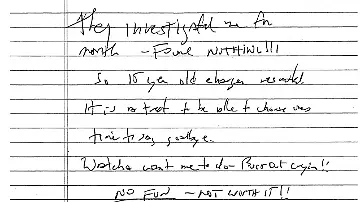 They investigated me for
month - Found NOTHING!!!
So 15 year old charges resurrected
It is a treat to be able to choose ones
time to say goodbye.
Watcha want me to do - Burst out crying!!
NO FUN - NOT WORTH IT!!